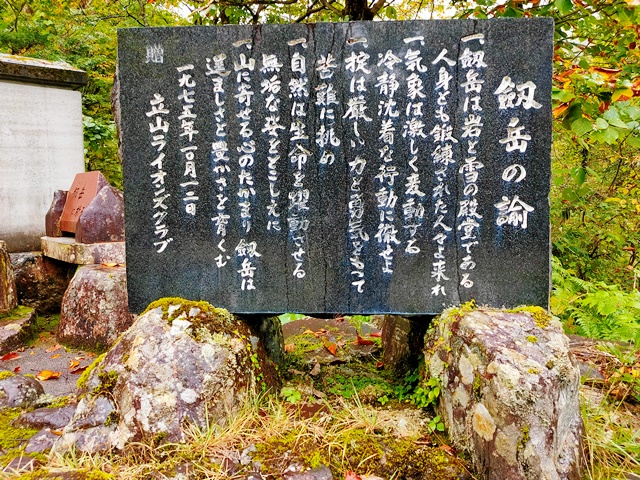 剱岳の諭
一 剱岳は岩と雪の殿堂である
人身ともに鍛錬された人々よ来れ
一 気象は激しく変動する
冷静沈着な行動に徹せよ
一 掟は厳しい 力と勇気をもって
苦難に挑め
一 自然は生命を躍動させる
無垢な姿をとこしえに
一 山に寄せる心のたかまり 剱岳は
逞ましさと豊かさを育くむ
一九七五年一〇月一二日
立山ライオンズクラブ
贈